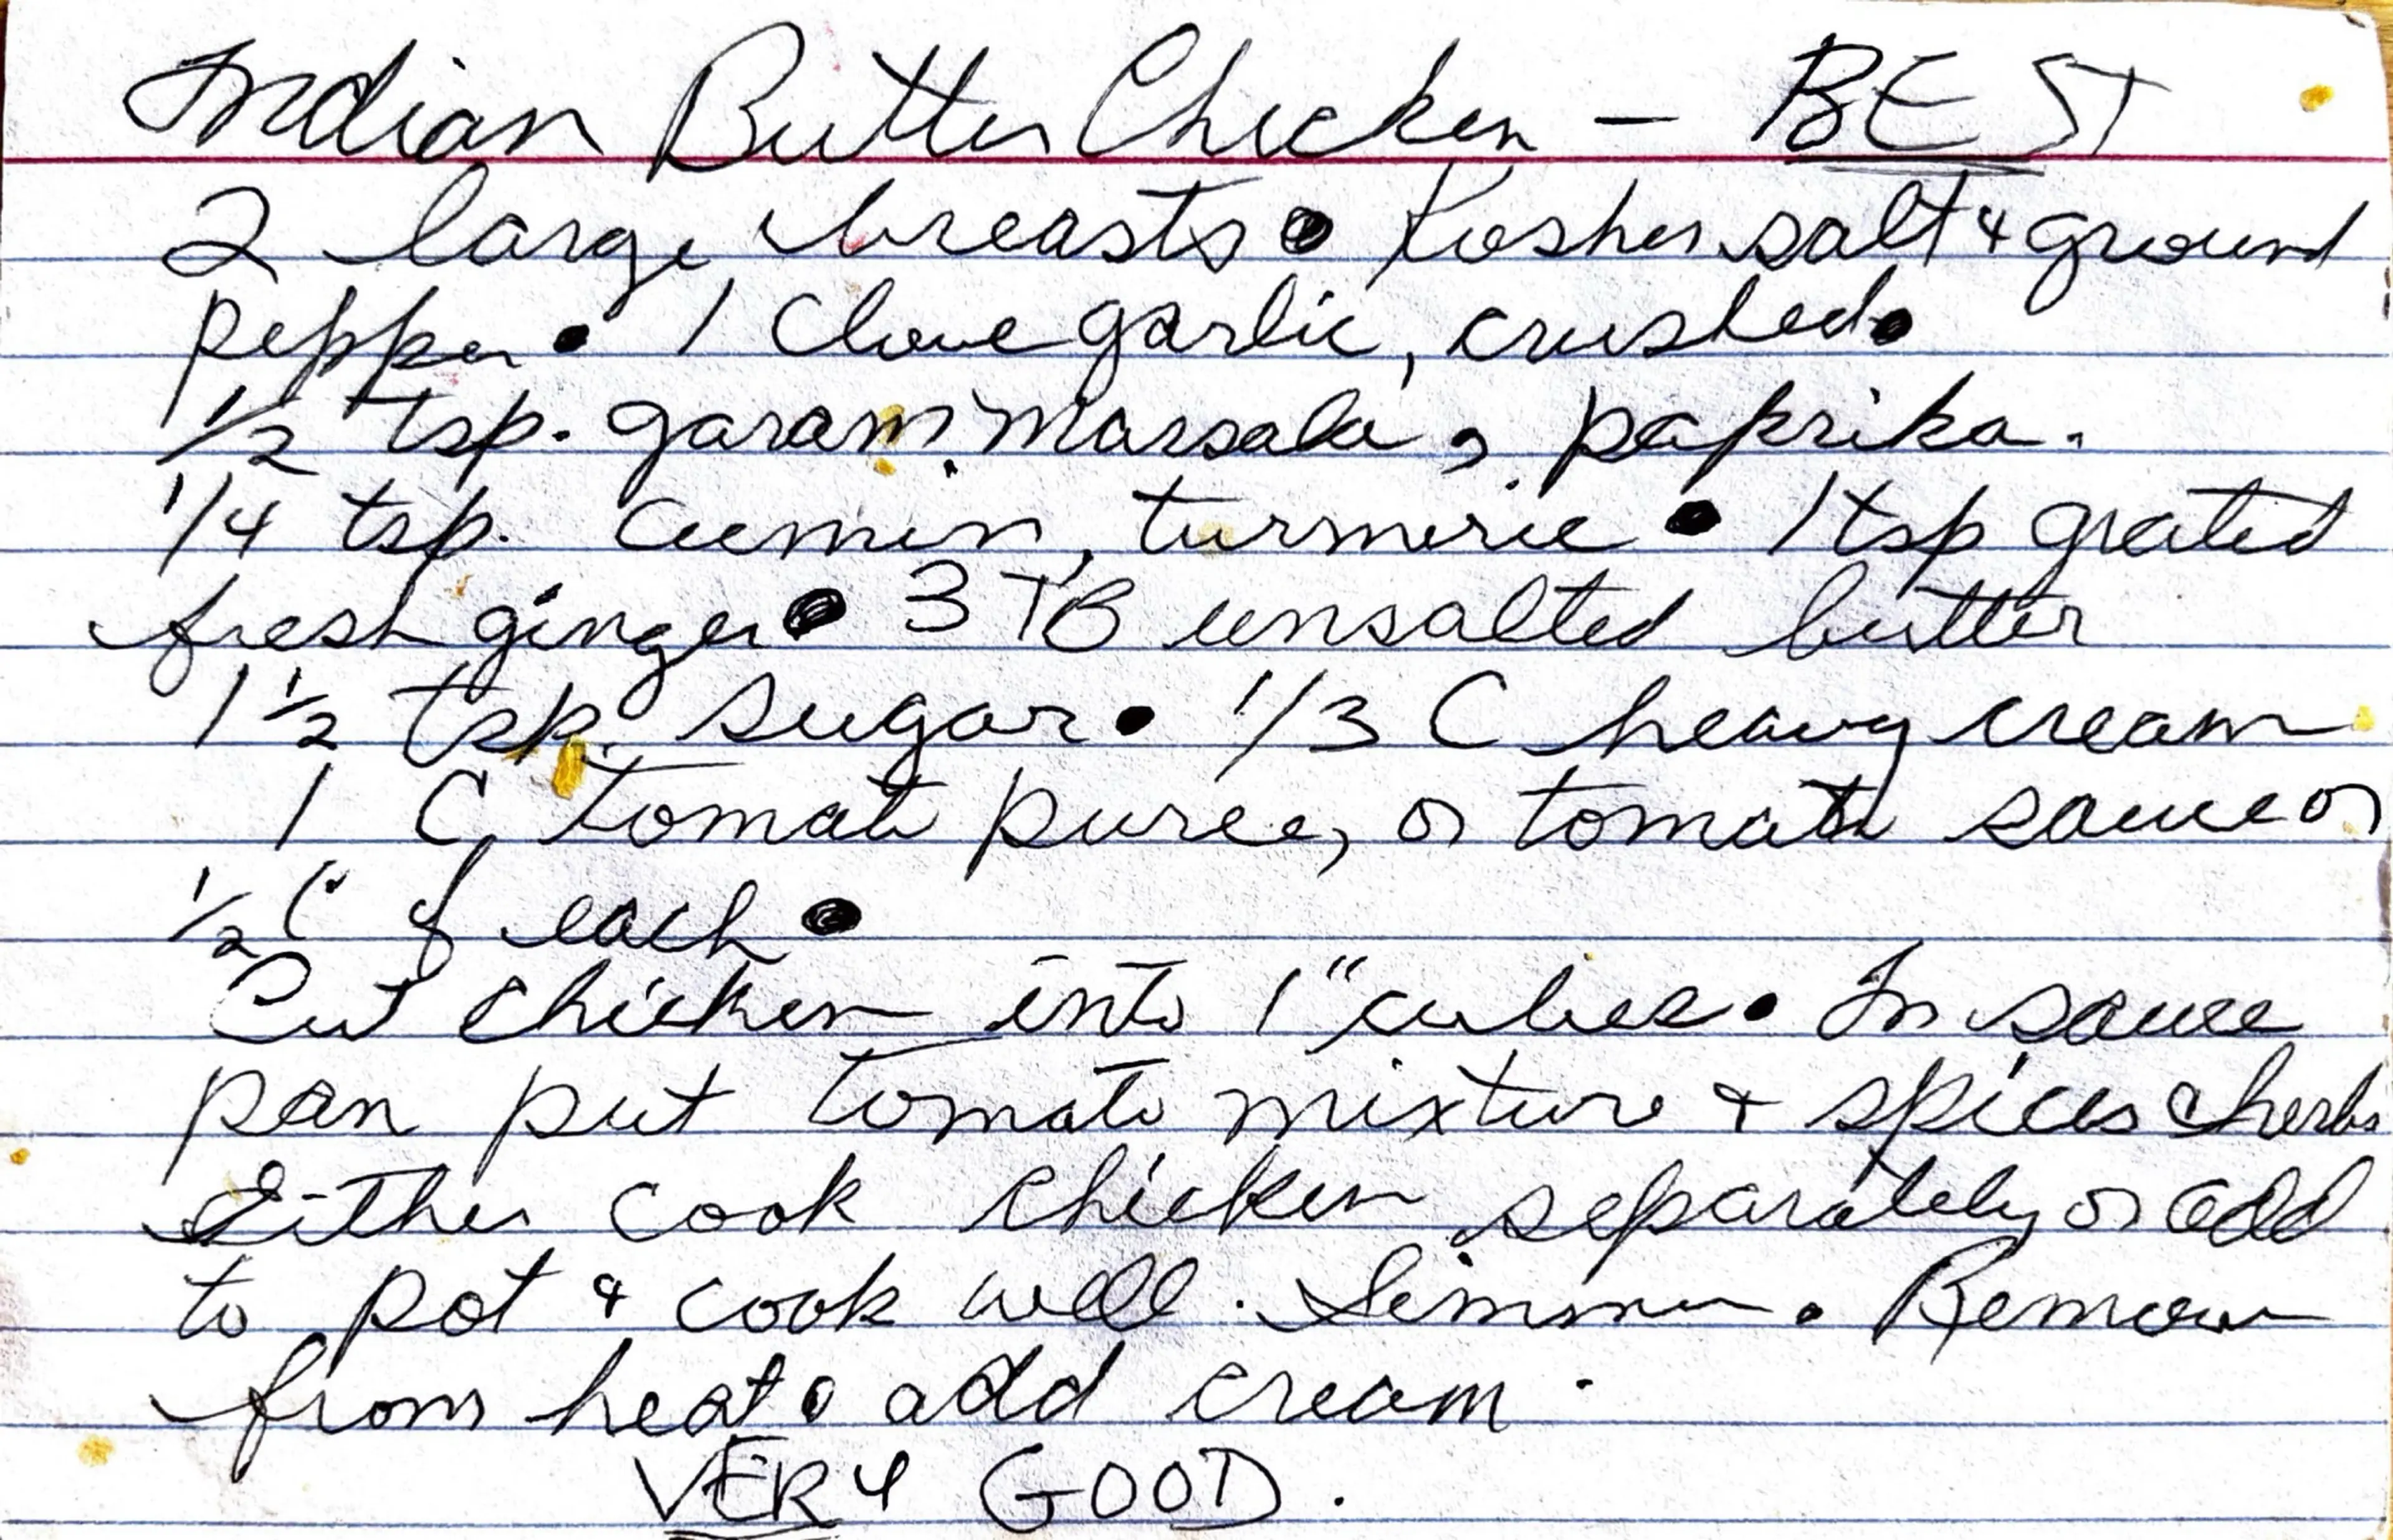 Indian Butter Chicken - BEST
2 large breasts • Kosher salt & ground
pepper • 1 clove garlic, crushed •
1/2 tsp. garam marsala, paprika.
1/4 tsp. cumin, turmeric • 1 tsp grated
fresh ginger • 3 TB unsalted butter
1 1/2 tsp. sugar • 1/3 C heavy cream
1 C, tomato puree, or tomato sauce or
1/2 C of each •
Cut chicken into 1" cubes. In sauce
pan put tomato mixture & spices & herbs
Either cook chicken separately or add
to pot & cook well. Simmer. Remove
from heat • add cream.
VERY GOOD.